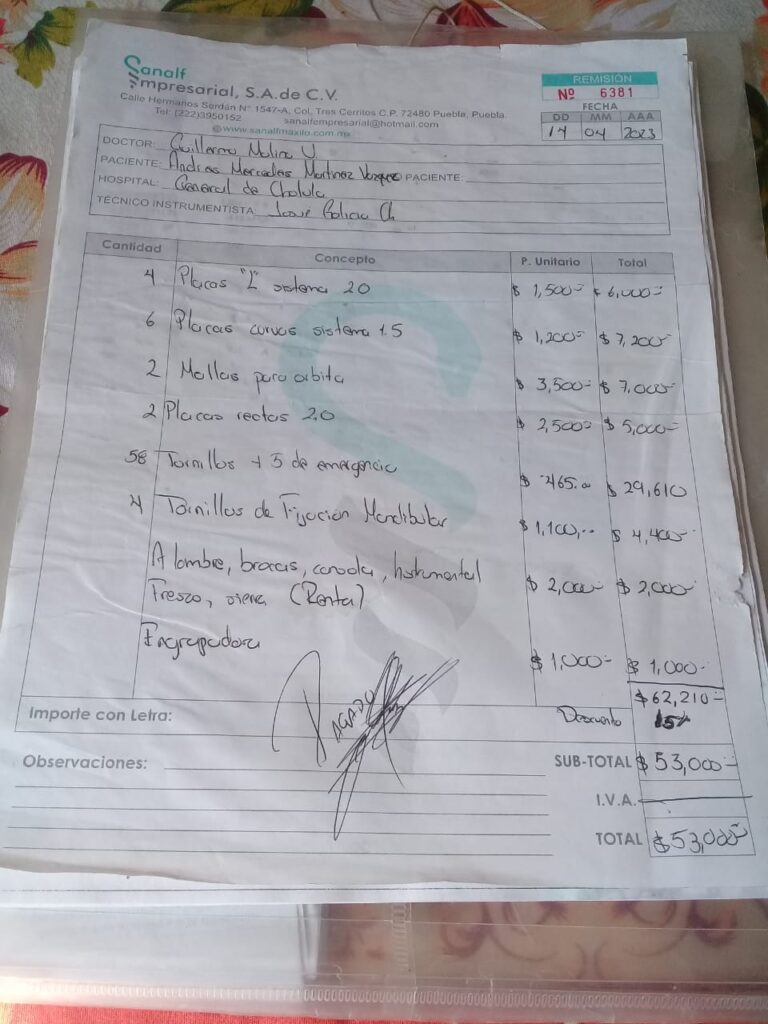 Sanalf
Empresarial, S.A. de C.V.
Calle Hermanos Serdán Nº 1547-A, Col. Tres Cerritos C.P. 72480 Puebla, Puebla.
Tel: (222)3950152 sanalfempresarial@hotmail.com
www.sanalfmaxilo.com.mx
REMISIÓN
Nº 6381
FECHA
DD MM AAA
14 04 2023
DOCTOR: Guillermo Molina U
PACIENTE: Andres Mercedes Martinez Vazquez PACIENTE:
HOSPITAL: General de Cholula
TÉCNICO INSTRUMENTISTA José Ch.
Cantidad Concepto P. Unitario Total
4 Placas "L" sistema 2.0 $ 1,500- $ 6,000-
6 Placas curvas sistema 1.5 $ 1,200- $ 7,200-
2 Mallas para orbita $ 3,500- $ 7,000-
2 Placas rectas 2.0 $ 2,500- $ 5,000-
58 Tornillos + 5 de emergencia $ 465.00 $ 29,610
4 Tornillos de Fijacion Mandibular $ 1,100,.. $ 4,400-
Alambre, brocas, consola, Instrumental $ 2,000- $ 2,000-
sierra (Renta)
Engrapadora $ 1,000- $ 1,000-
$62,210-
PAGADO
Importe con Letra: Descuento 15%
Observaciones: SUB-TOTAL $ 53,000-
I.V.A.
TOTAL $53,000-